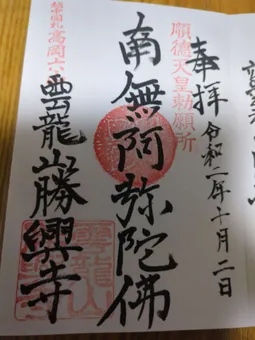 奉拝
令和二年十月二日
順徳天皇勅願所
南無阿弥陀佛
雲龍山勝興寺
高岡
雲龍山